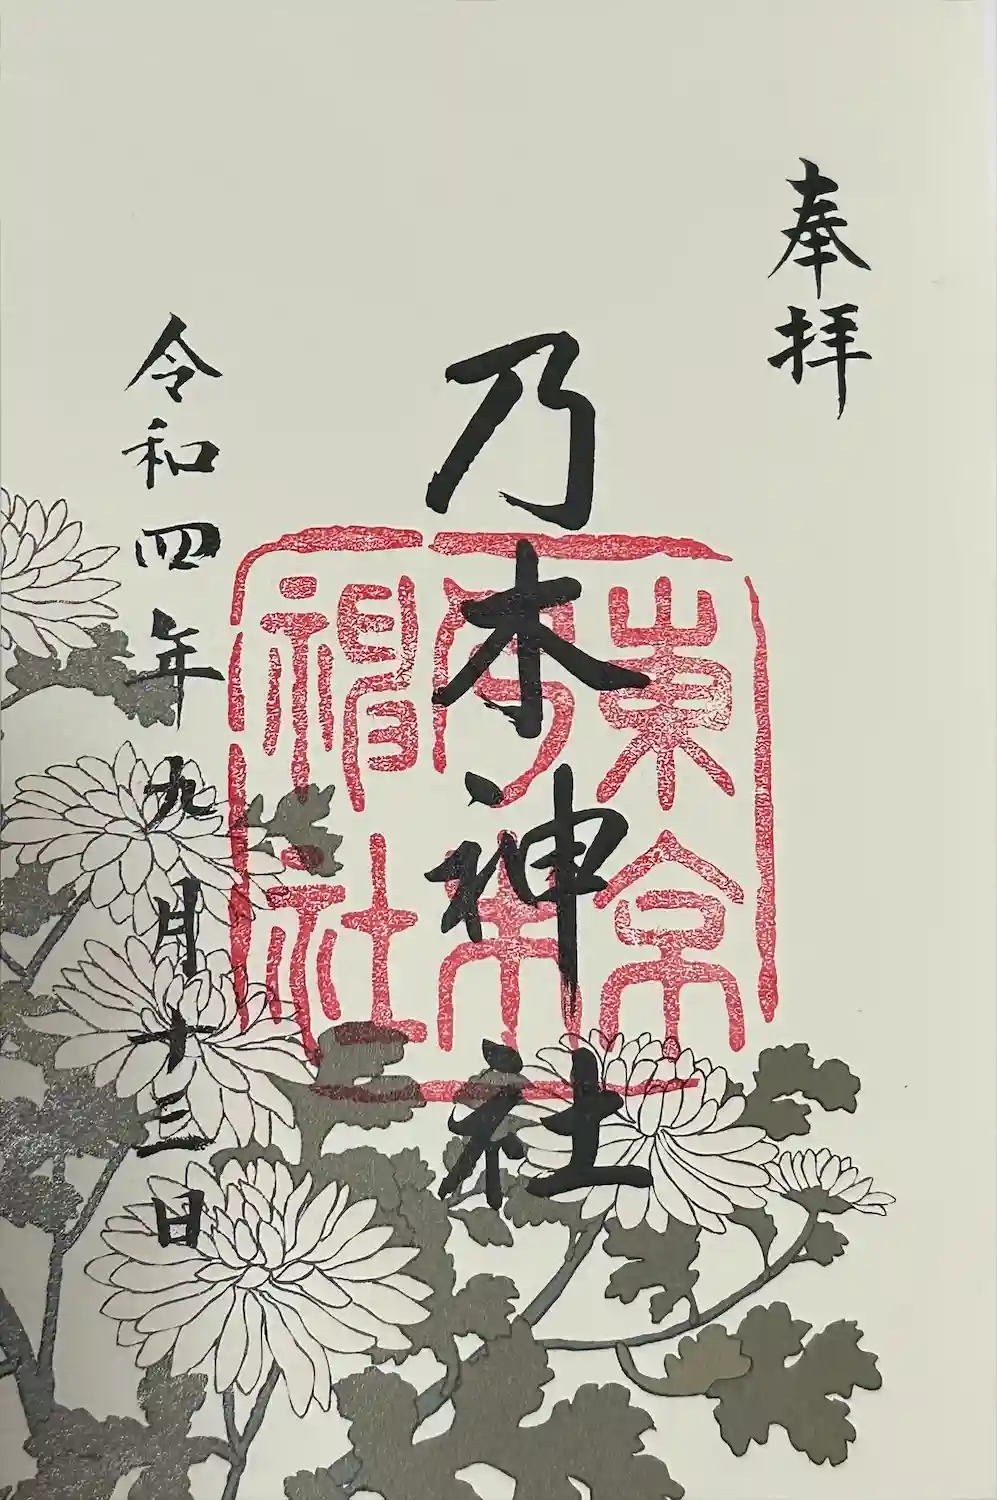 奉拝
乃木神社
東京
乃木
神社
令和四年九月十三日